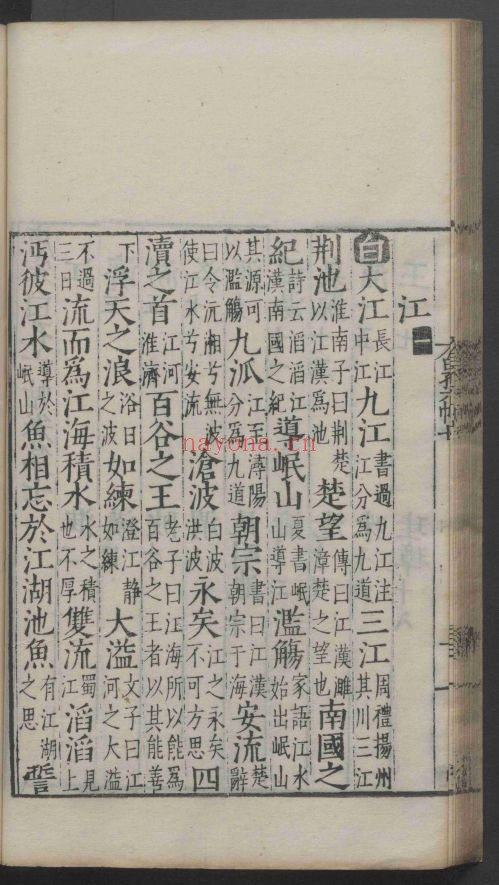 江一
白大江長江中江九江書過九江注江分爲九道三江周禮揚州其川三江
荆池淮南子曰荆楚以江漢爲池楚望傳曰江漢雎漳楚之望也南國之
紀詩云滔滔江漢南國之紀導岷山夏書岷山導江濫觴家語江水始出岷山
其源可以濫觴九泒江至潯陽分爲九道朝宗書曰江漢朝宗于海安流楚辭
曰令沅湘兮無波使江水兮安流滄波白波洪波永矣江之永矣不可方思四
瀆之首江河淮濟百谷之王老子曰江海所以能爲百谷之王者以其能善
下浮天之浪浴日之波如練澄江靜如練大溢文子曰江河之大溢
不過三日流而爲江海積水水之積也不厚雙流蜀江滔滔見上
沔彼江水導於岷山魚相忘於江湖池魚有江湖之思誓
nayona.cn